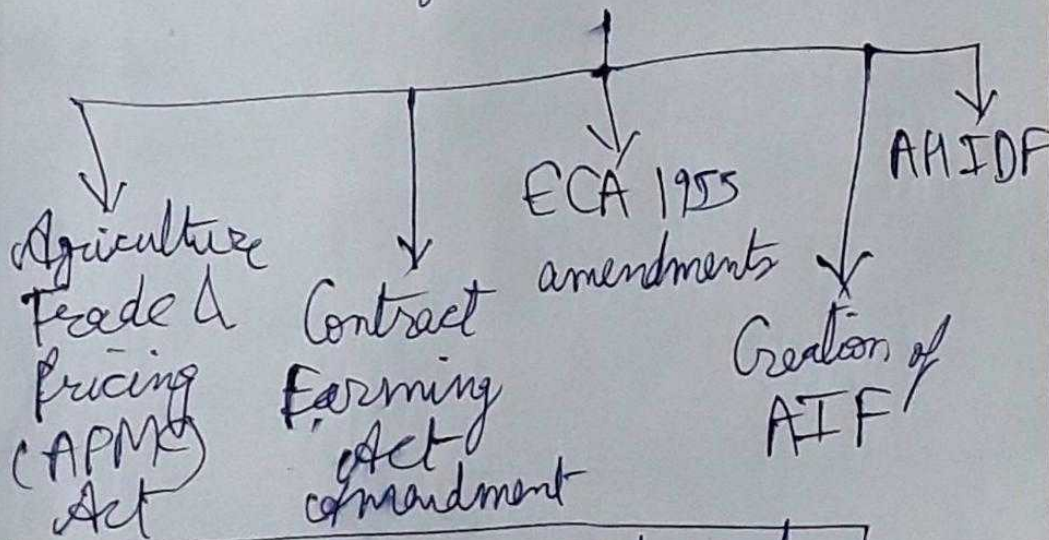 Agriculture
Trade &
Pricing
(APMC)
Act
Contract
Farming
Act
Amendment
ECA 1955
amendments
Creation of
AIF
AHIDF